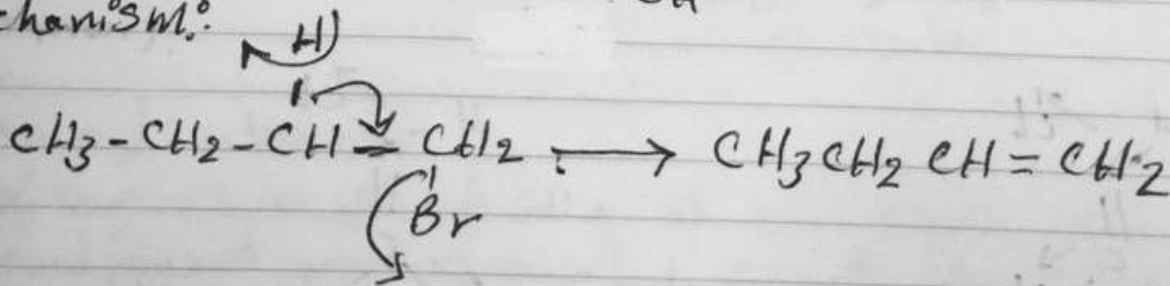 chanism:
H
CH3-CH2-CH=CH2 → CH3CH2CH=CH2
Br